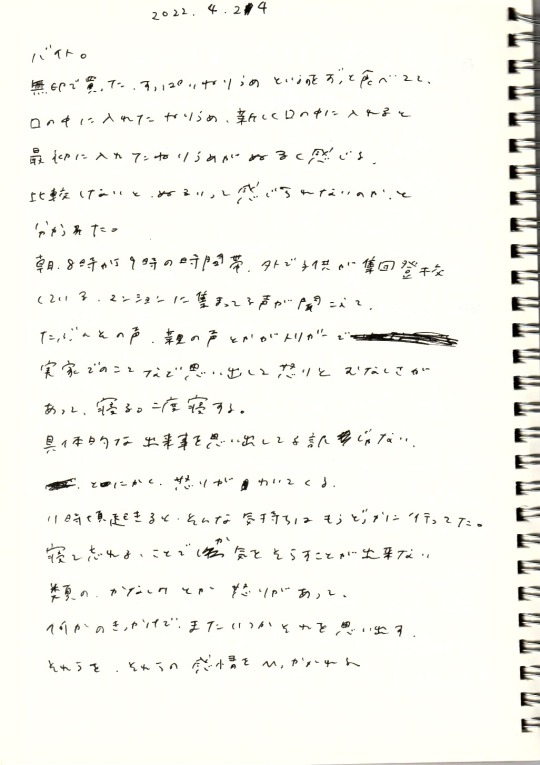 2022. 4. 24
バイト。
無印で買った、すっぱいカリうめ という干し梅 ずっと食べてて、
口の中に入れてたカリうめ、新しく口の中に入れると
最初に入れてたカリうめがぬるく感じる。
比較しないと、ぬるいって感じられないのか、と
分かった。
朝、8時から9時の時間帯、外で子供が集団登校
している。マンションに集まってる声が聞こえて、
たぶんその声、朝の声とかがトリガーで
実家でのことなど思い出して怒りと むなしさが
あって、寝る。二度寝する。
具体的な出来事を思い出してる訳じゃない
とにかく、怒りがわいてくる。
11時頃起きると、そんな気持ちはもうどっかに行ってた。
寝て忘れる、ことでしか気をそらすことが出来ない
類の、かなしみとか 怒りがあって、
何かのきっかけで、またいつかそれを思い出す。
それらを、それらの感情を